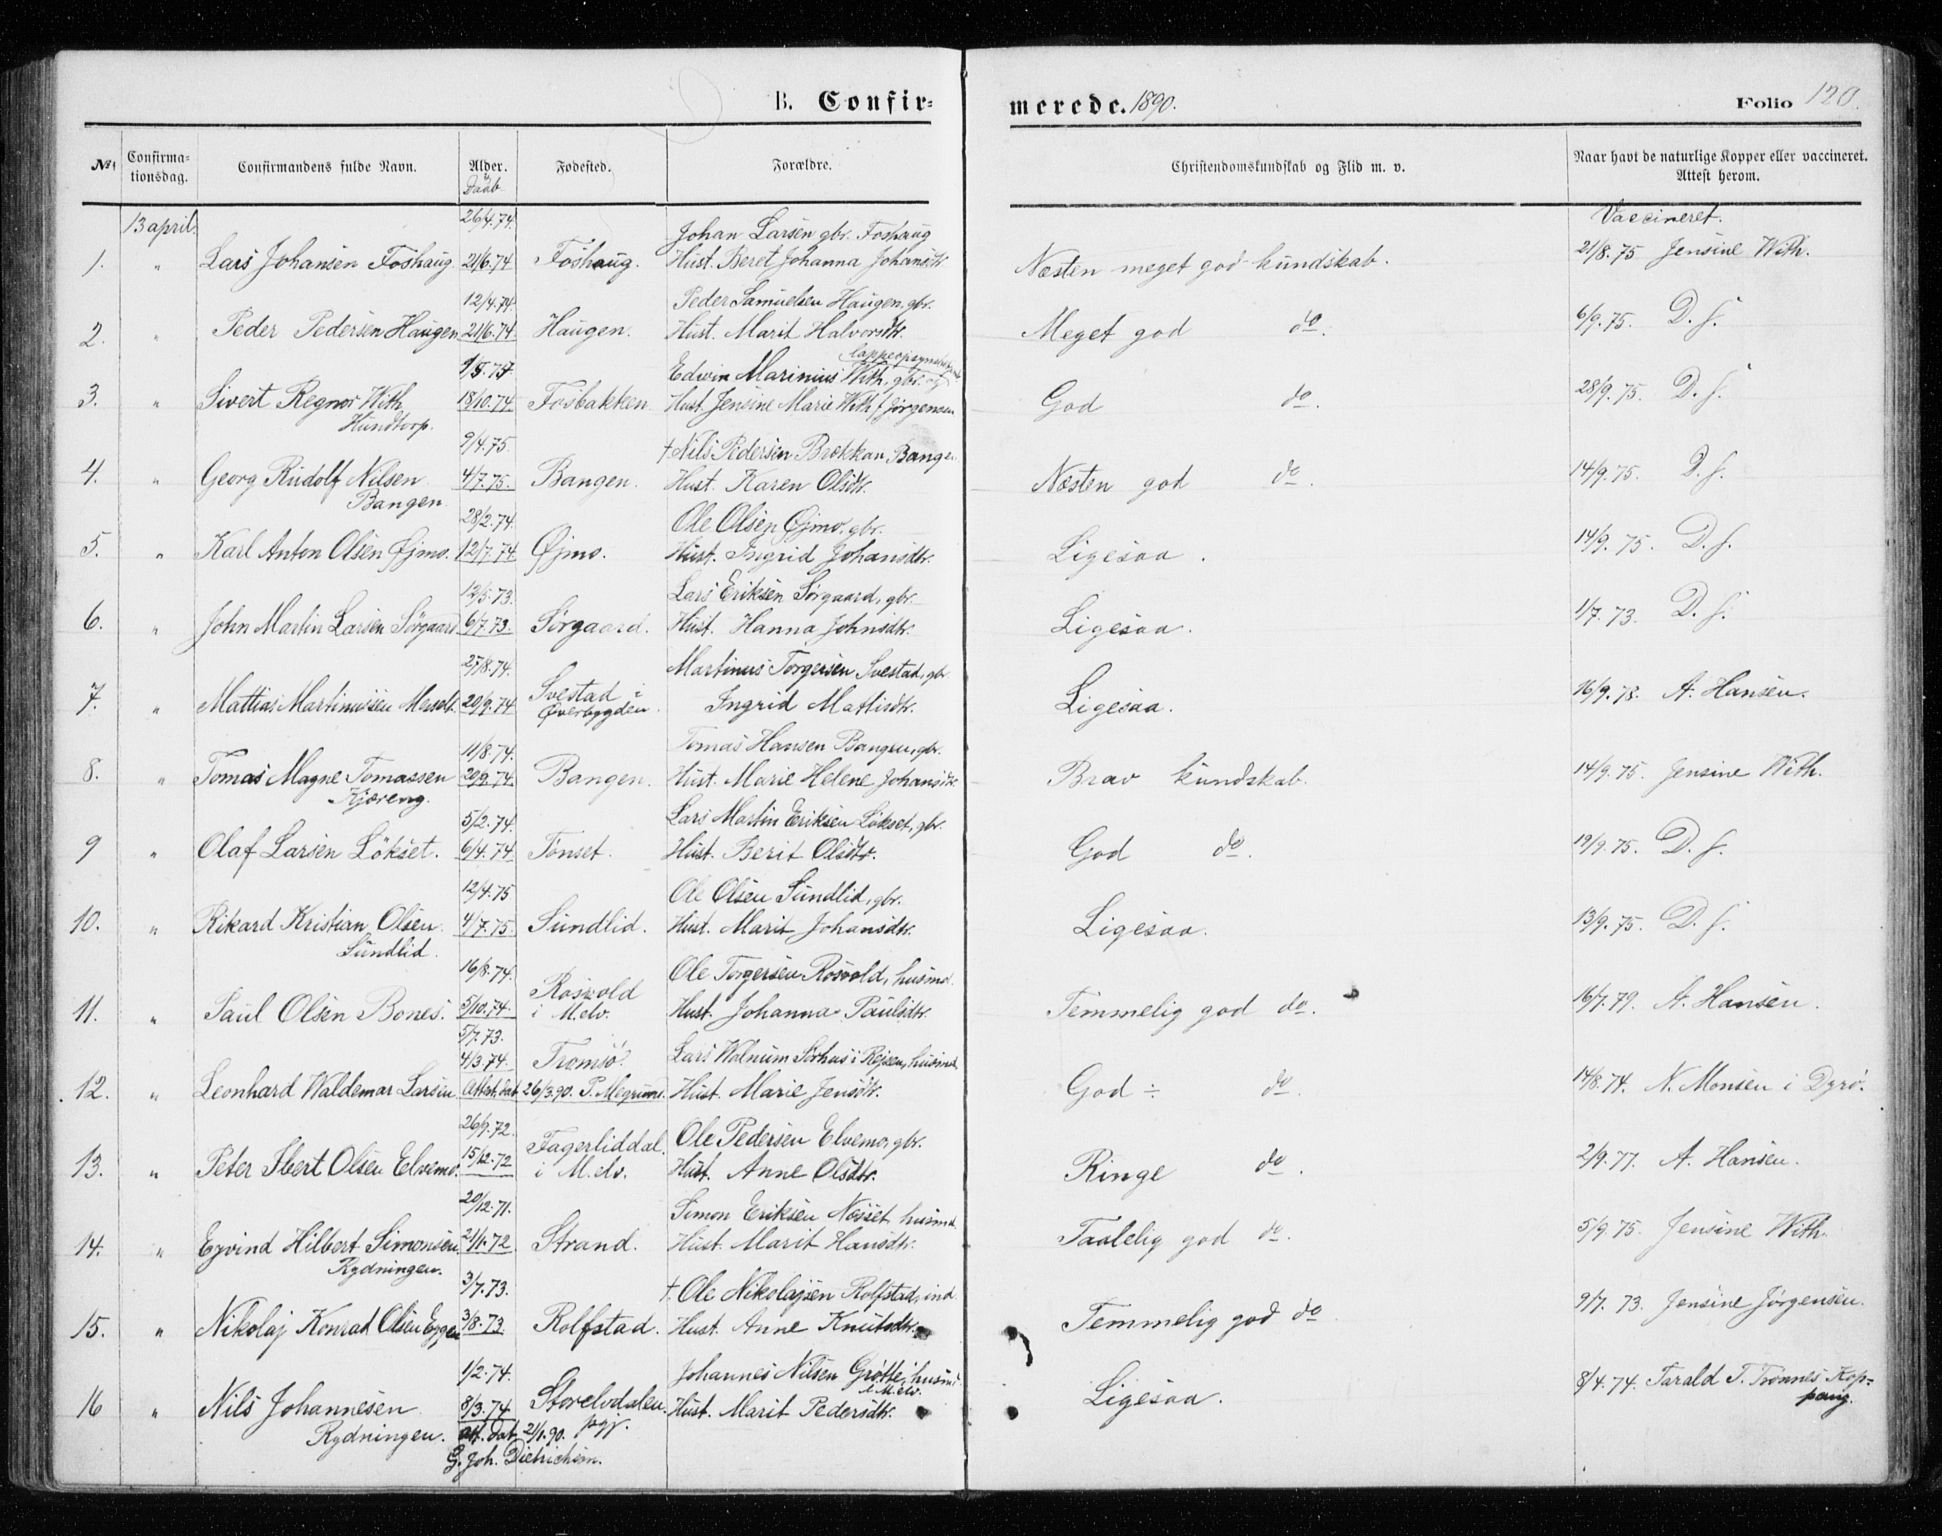 B. Confir=
merede. 1890.
Folio 120.
№
Confirma=
tionsdag.
Confirmandens fulde Navn.
Alder.
Daab
Fødested.
Forældre.
Christendomskundskab og Flid m. v.
Naar havt de naturlige Kopper eller vaccineret.
Attest herom.
13 april. 26/4.74. Johan Larsen gbr. Foshaug Vaccineret.
1. " Lars Johansen Foshaug. 21/6.74 Foshaug. Hust. Beret Johanna Johansdtr. Næsten meget god kundskab. 21/8.75 Jensine With.
12/4.74 Peder Samuelsen Haugen, gbr.
2. " Peder Pedersen Haugen 21/6.74 Haugen. Hust. Marit Halvorsdtr. Meget god do. 6/9.75. D. s.
Edvin Marinius With, gbr. og
3. " Sivert Regnor With 18/10.74. Fosbakken. Hust. Jensine Marie With f. Jørgensen God do. 28/9.75. D. s.
Hundtorp.
9/4.75. † Nils Pedersen Brækkan, Bangen
4. " Georg Rudolf Nilsen 4/7.75. Bangen. Hust. Karen Olsdtr. Næsten god do. 14/9.75. D. s.
Bangen
28/2.74. Ole Olsen Øjmo. gbr.
5. " Karl Anton Olsen Øjmo. 12/7.74 Øjmo. Hust. Ingrid Johansdtr. Ligesaa. 14/9.75. D. s.
12/5.73. Lars Eriksen Sørgaard, gbr.
6. " John Martin Larsen Sørgaard 6/7.73. Sørgaard. Hust. Hanna Johnsdtr. Ligesaa. 1/7.73. D. s.
27/8.74. Martinus Torgersen Svestad, gbr.
7. " Mattias Martinussen 20/9.74 Svestad i Ingrid Matlisdtr. Ligesaa. 16/9.78. A. Hansen.
Øverbygden.
11/8.74. Tomas Hansen Bangen, gbr.
8. " Tomas Magne Tomassen 20/9.74. Bangen. Hust. Marie Helene Johansdtr. Brav kundskab. 14/9.75. Jensine With.
Kjæreng.
5/2.74. Lars Martin Eriksen Løkset, gbr.
9 " Olaf Larsen Løkset. 6/4.74 Tønset. Hust. Berit Olsdtr. God do. 19/9.75. D. s.
12/4.75 Ole Olsen Sundlid, gbr.
10. " Rikard Kristian Olsen 4/7.75. Sundlid. Hust. Marit Johansdtr. Ligesaa. 13/9.75. D. s.
Sundlid.
16/8.74. Ole Torgersen Rosvold, husmd.
11. " Paul Olsen Bones. 5/10.74. Rosvold Hust. Johanna Paulsdtr. Temmelig god do. 16/7.79. A. Hansen.
i M.elv.
5/7.73.
4/3.74. Tromsø. Lars Walnum Sørhus i Rejsen, husmd.
12. " Leonhard Waldemar Larsen Attest. dat. 26/3.90. P. Hust. Marie Jensdtr. God ÷ do. 14/8.74. N. Monsen i Dyrø.
26/9.72. Ole Pedersen Elvemo, gbr.
13. " Peter Ibert Olsen Elvemo. 15/12.72 Fagerliddal. Hust. Anne Olsdtr. Ringe do. 2/9.77. A. Hansen.
i M.elv.
20/12.71. Simon Eriksen Næsset husmd.
14. " Eyvind Hilbert Simonsen 21/1.72 Strand. Hust. Marit Hansdtr. Taalelig god do. 5/9.75. Jensine With.
Rydningen.
3/7.73. † Ole Nikolajsen Rolfstad, ind
15. " Nikolaj Konrad Olsen Eggen 3/8.73 Rolfstad. Hust. Anne Knutsdtr. Temmelig god do 9/7.73. Jensine Jørgensen.
1/2.74. Johannes Nilsen Grøtte, husmd
i M.elv.
16 " Nils Johannesen 8/3.74 Storelvdalen Hust. Marit Pedersdtr. Ligesaa. 8/4.74. Tarald T. Trønnes Kop=
pang.
Rydningen. att. dat. 21/1.90. pgj.
G. Joh. Dietrichson.